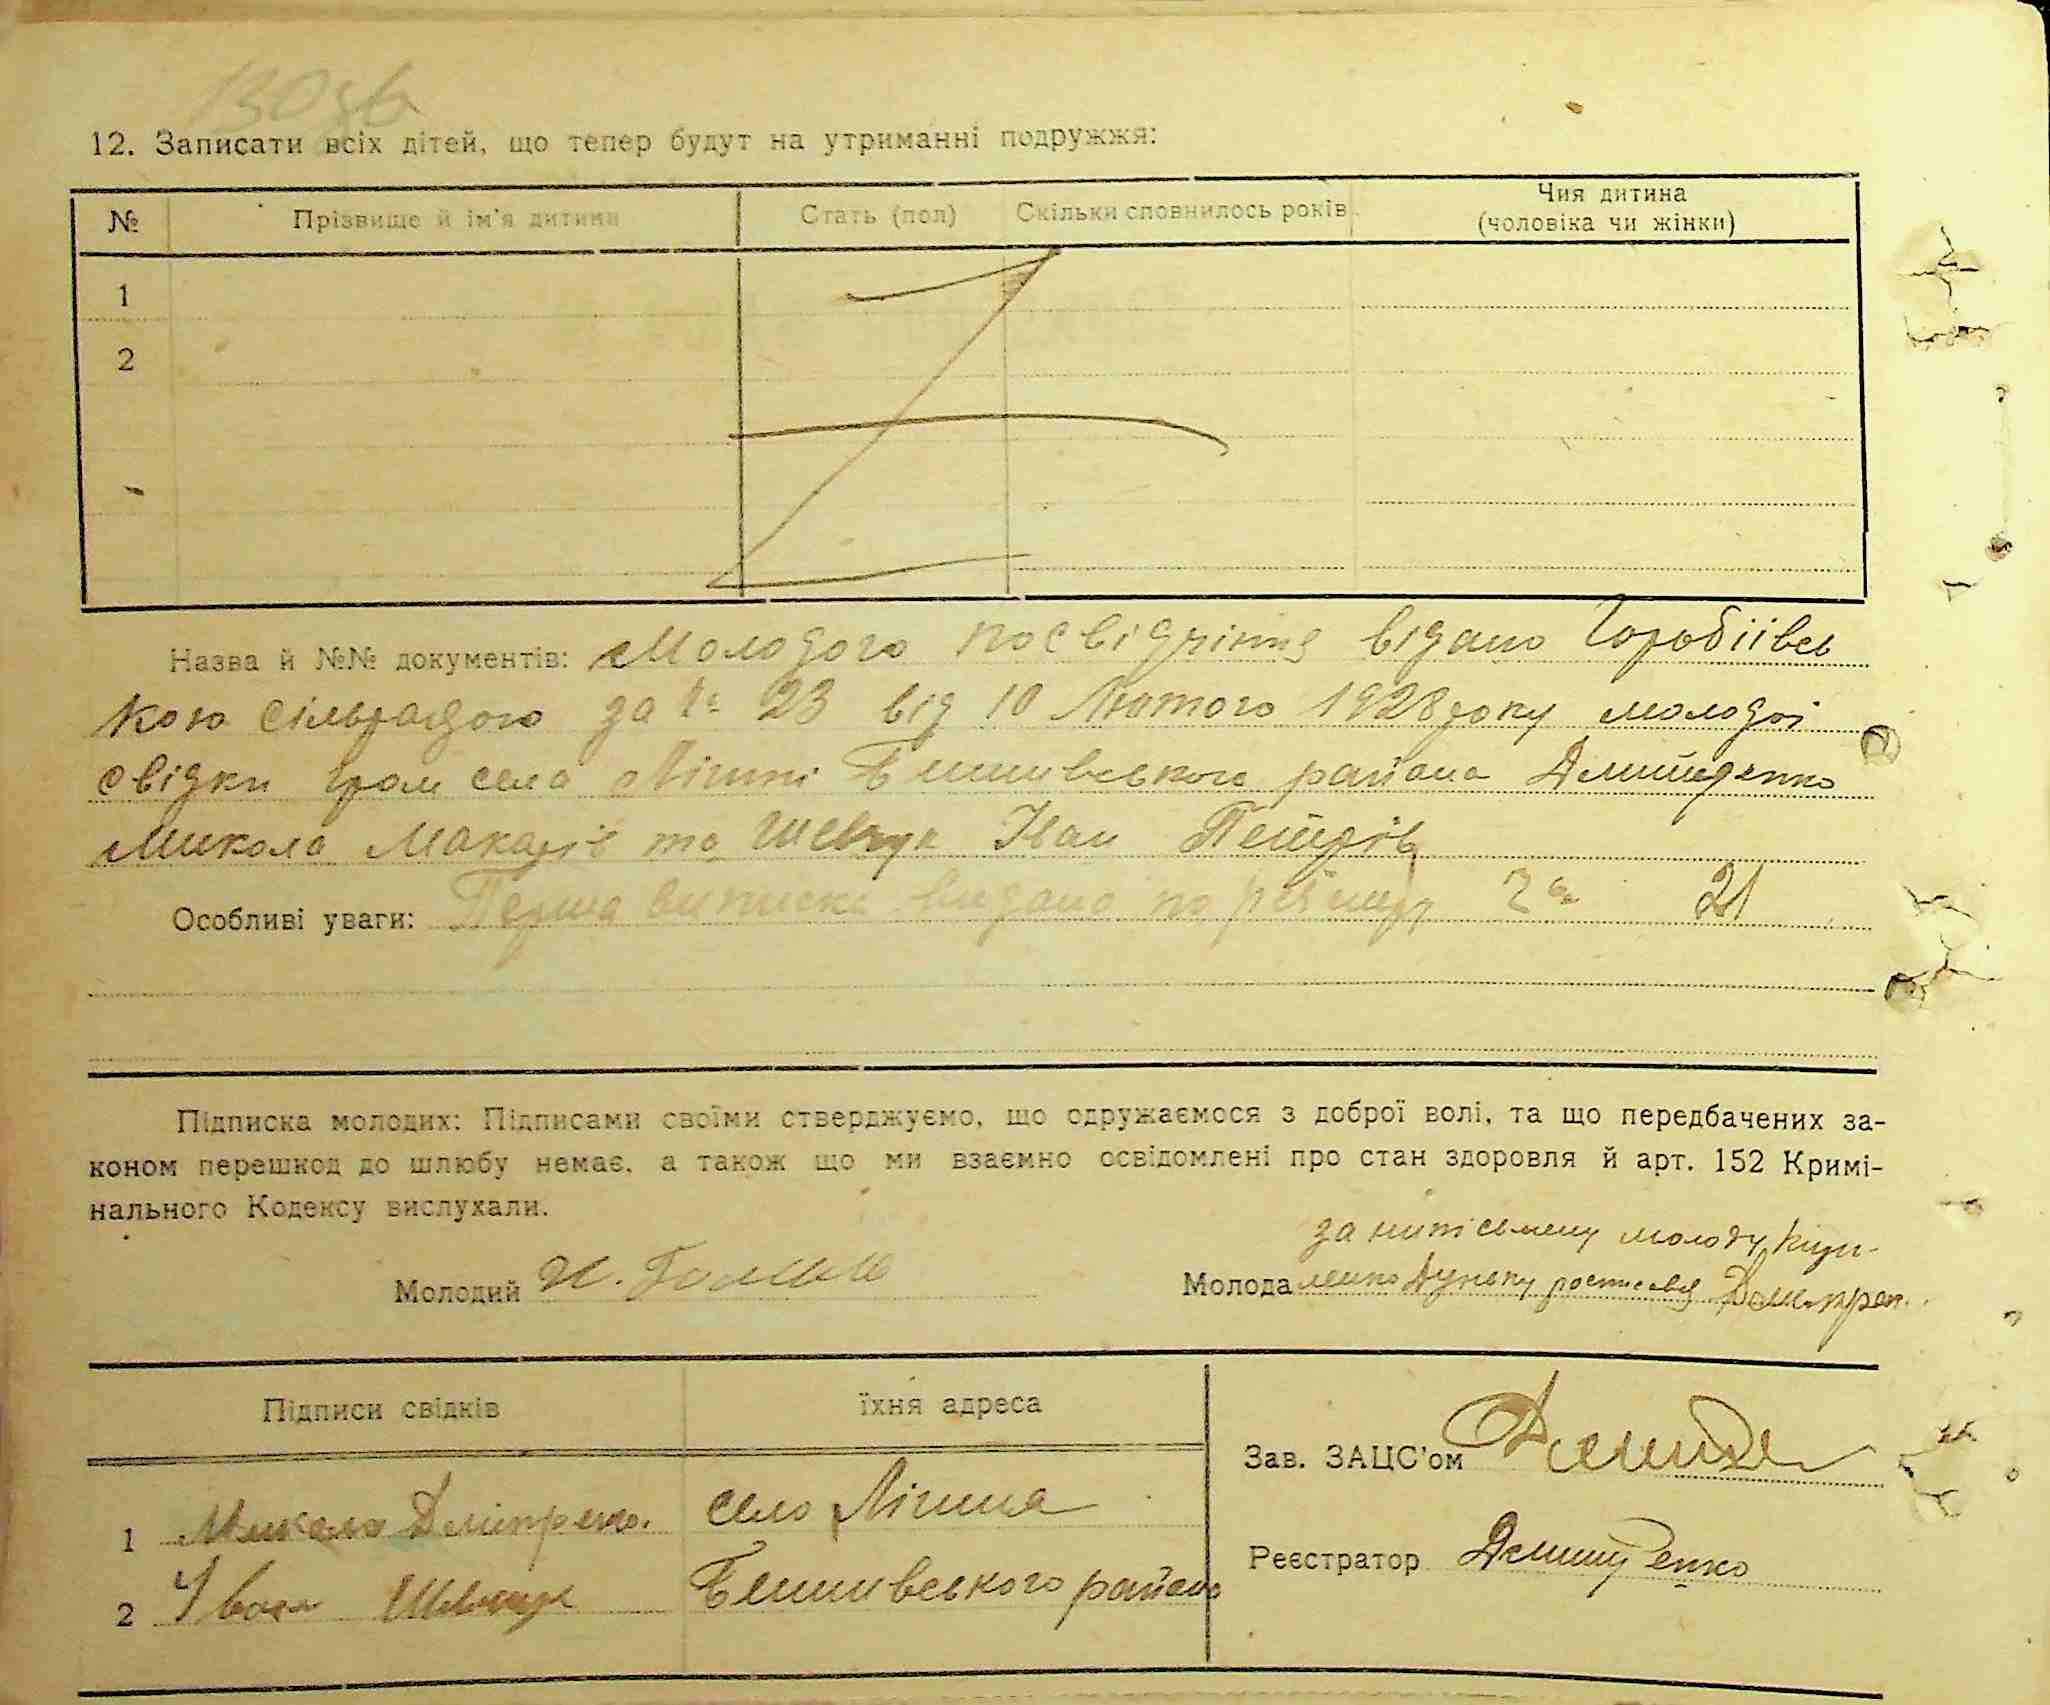 130 зв
12. Записати всіх дітей, що тепер будут на утриманні подружжя:
№ Прізвище й ім'я дитини Стать (пол) Скільки сповнилось років Чия дитина (чоловіка чи жінки)
1
2
Назва й №№ документів: Молодого посвідчіння відано Горобіівсь
кою сільрадою за № 23 від 10 Лютого 1928 року молодої
свідки гром села Лішні Бишивського района Дмитренко
Микола Макарів та Шевчук Іван Петрів
Особливі уваги: Перша виписка видана по реістру № 21
Підписка молодих: Підписами своїми стверджуємо, що одружаємося з доброї волі, та що передбачених за-
коном перешкод до шлюбу немає, а також що ми взаємно освідомлені про стан здоровля й арт. 152 Кримі-
нального Кодексу вислухали.
за нипісьмену молоду
Молодий Молода Дуньку росписався
Підписи свідків їхня адреса
Зав. ЗАЦС'ом
1 Микола Дмітренко. село Лішня
Реєстратор Дмитренко
2 Іван Шевчук Бишивського района